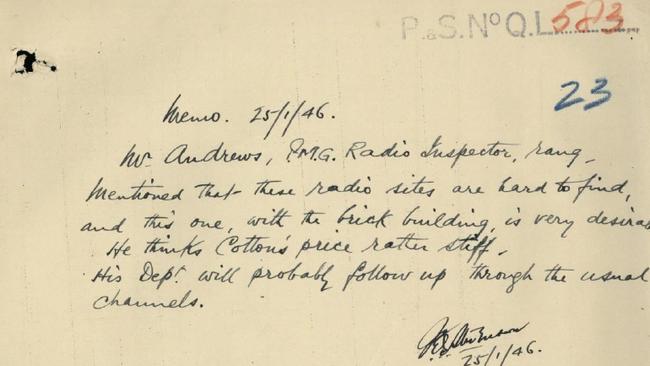 P.&S. No Q.L. 583
23
Memo. 25/1/46.
Mr Andrews, P.M.G. Radio Inspector, rang.
Mentioned that these radio sites are hard to find,
and this one, with the brick building, is very desirab
He thinks Cotton's price rather stiff.
His Dept. will probably follow up through the usual
channels.
25/1/46.